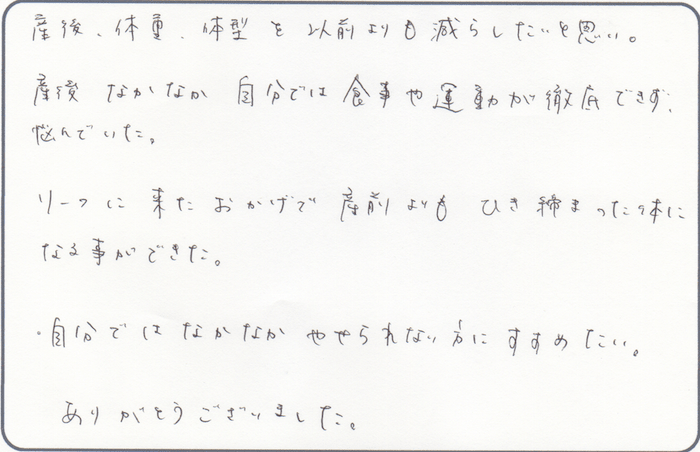 産後、体重、体型を以前よりも減らしたいと思い。
産後なかなか自分では食事や運動が徹底できず、
悩んでいた。
リーフに来たおかげで産前よりもひき締まった体に
なる事ができた。
・自分ではなかなかやせられない方にすすめたい。
ありがとうございました。